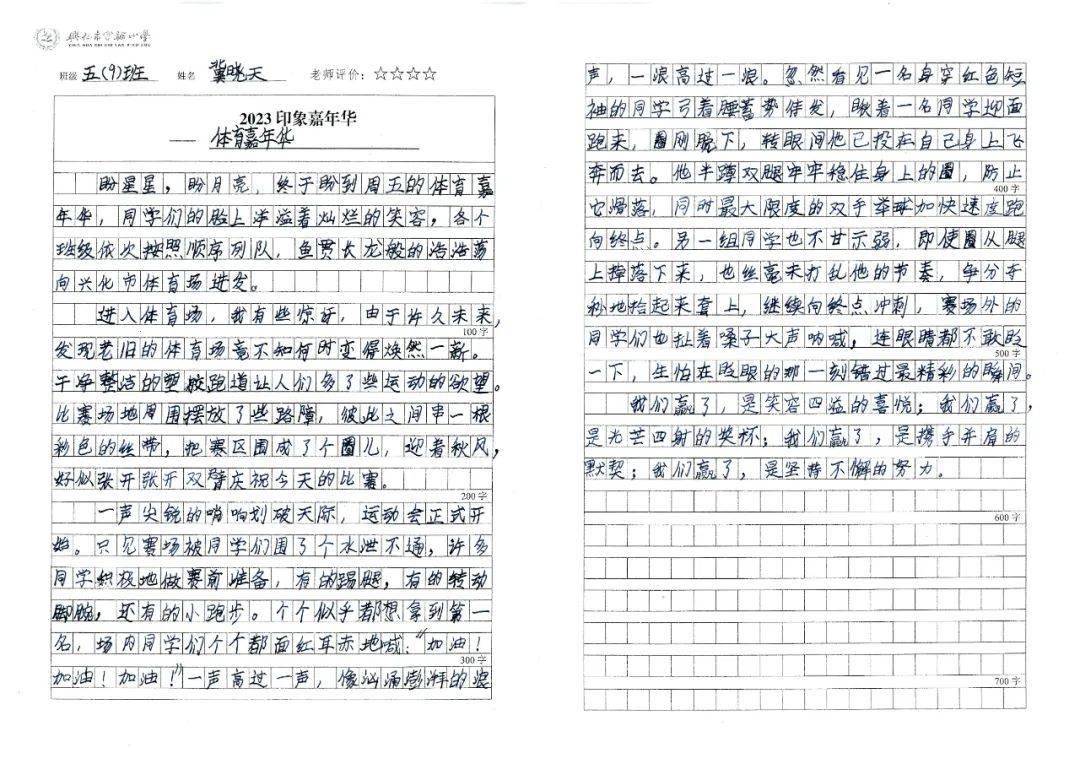 兴化市实验小学
班级 五(9)班 姓名 冀晓天 老师评价：☆☆☆☆
2023 印象嘉年华
—— 体育嘉年华
盼星星，盼月亮，终于盼到周五的体育嘉
年华，同学们的脸上洋溢着灿烂的笑容，各个
班级依次按照顺序列队，鱼贯长龙般的浩浩荡
向兴化市体育场进发。
进入体育场，我有些惊讶，由于许久未来，
100字
发现老旧的体育场竟不知何时变得焕然一新。
干净整洁的塑胶跑道让人们多了些运动的欲望。
比赛场地周围摆放了些路障，彼此之间串一根
彩色的丝带，把赛区围成了个圈儿，迎着秋风，
好似张开张开双臂庆祝今天的比赛。
200字
一声尖锐的哨响划破天际，运动会正式开
始。只见赛场被同学们围了个水泄不通，许多
同学积极地做赛前准备，有的踢腿，有的转动
脚腕，还有的小跑步。个个似乎都想拿到第一
名，场内同学们个个都面红耳赤地喊：“加油！
300字
加油！加油！”一声高过一声，像汹涌澎湃的浪
声，一浪高过一浪。忽然看见一名身穿红色短
袖的同学弓着腰蓄势待发，瞅着一名同学迎面
跑来，圈刚脱下，转眼间他已投在自己身上飞
奔而去。他半蹲双腿牢牢稳住身上的圈，防止
400字
它滑落，同时最大限度的双手举球加快速度跑
向终点。另一组同学也不甘示弱，即使圈从腿
上掉落下来，也丝毫未打乱他的节奏，争分夺
秒地拾起来套上，继续向终点冲刺，赛场外的
同学们也扯着嗓子大声呐喊，连眼睛都不敢眨
500字
一下，生怕在眨眼的那一刻错过最精彩的瞬间。
我们赢了，是笑容四溢的喜悦；我们赢了，
是光芒四射的奖杯；我们赢了，是携手并肩的
默契；我们赢了，是坚持不懈的努力。
600字
700字